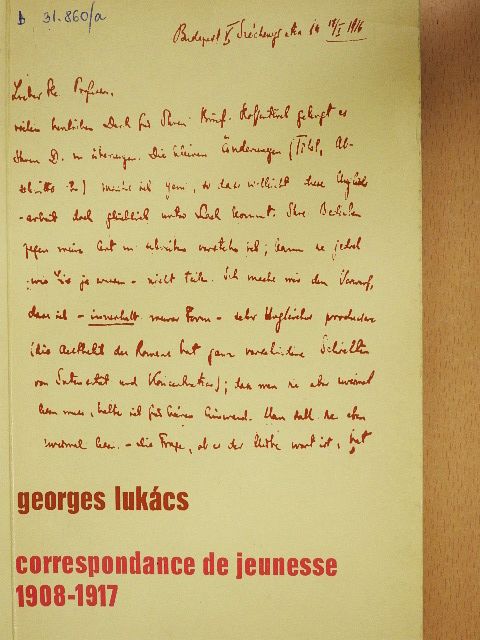 b 31.860/a
Budapest V
Lieber Hr. Professor,
vielen herzlichen Dank für Ihren Brief. Hoffentlich gelingt es
Ihnen D. zu überzeugen. Die kleinen Änderungen (Titel, Ab-
schnitte 2) mache ich gern, so dass vielleicht diese Unglücks-
-arbeit doch glücklich unter Dach kommt. Ihre Bedenken
gegen meine Art zu schreiben verstehe ich; kann sie jedoch
- wie Sie ja wissen - nicht teilen. Ich mache mir den Vorwurf,
dass ich - innerhalb meiner Form - sehr Ungleiches produziere
(die Aesthetik des Romans hat ganz verschiedene Schichten
von Intensität und Konzentration); dass man sie aber zweimal
lesen muss, halte ich für keinen Einwand. Man soll sie eben
zweimal lesen. - Die Frage, ob es der Mühe wert ist, hat
georges lukács
correspondance de jeunesse
1908-1917